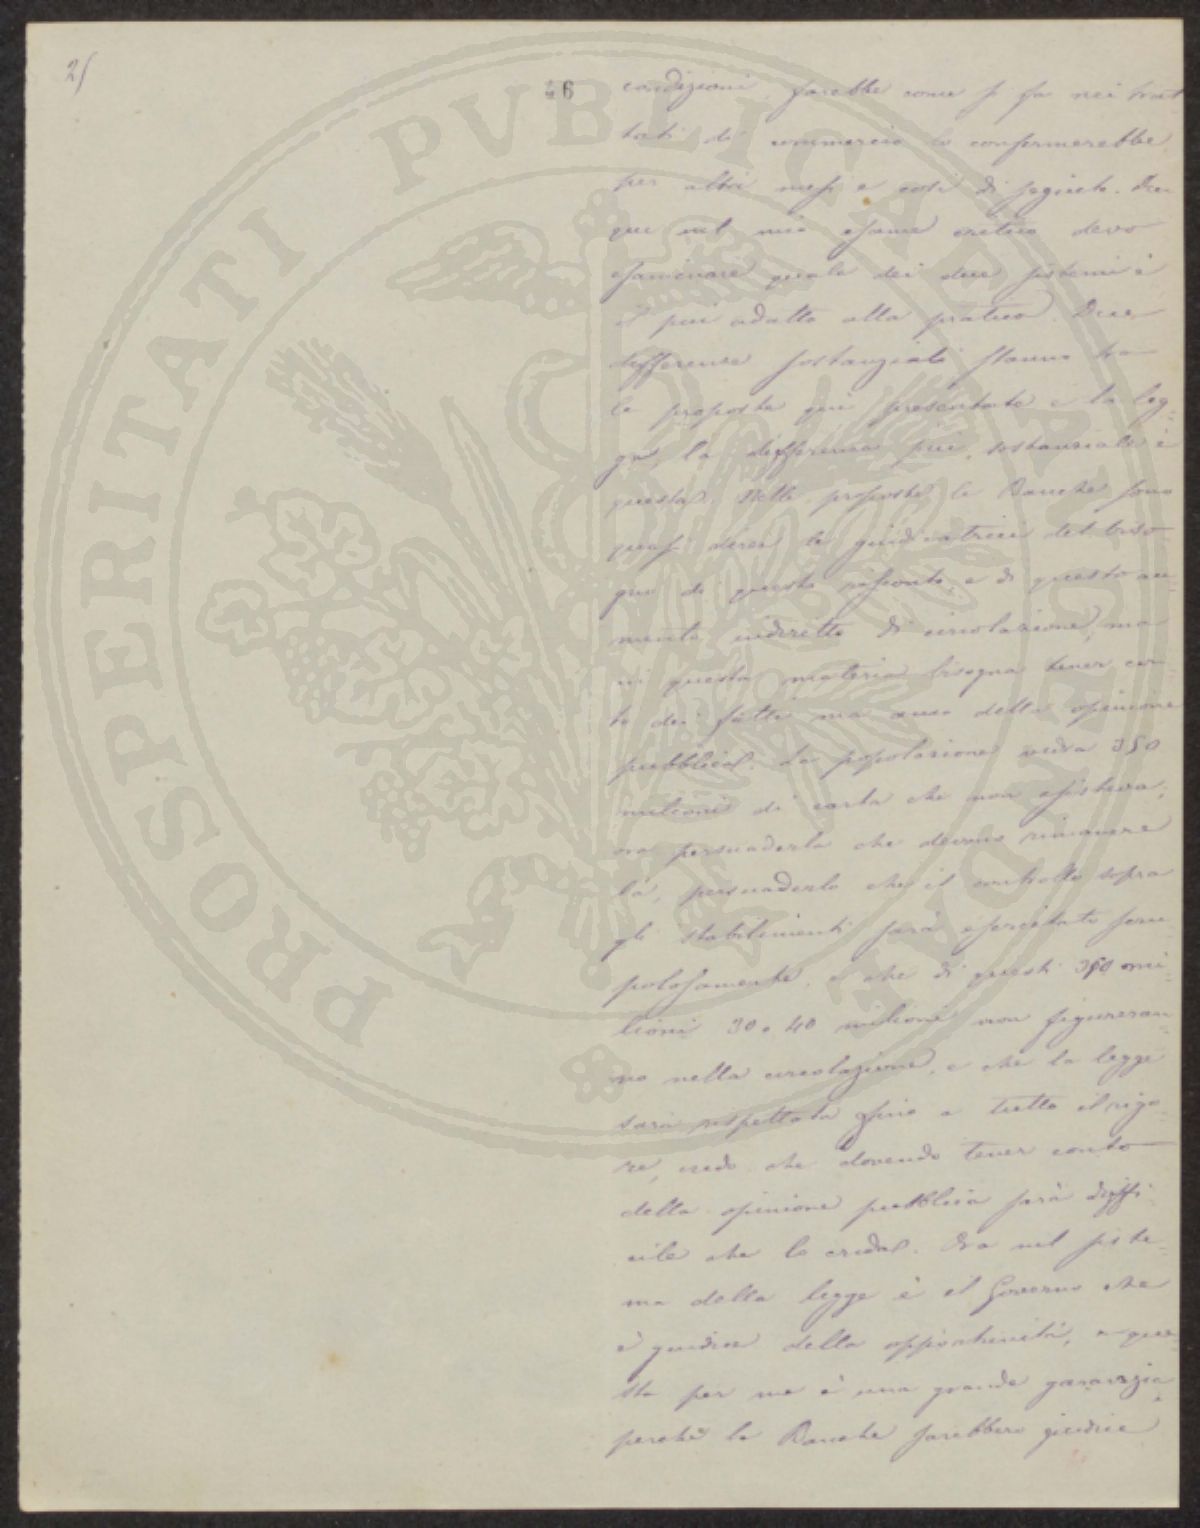 2/
46
condizioni, farebbe come si fa nei trat
tati di commercio lo confermerebbe
per altri mesi e così di seguito. Dun
que nel mio esame critico devo
esaminare quale dei due sistemi è
il più adatto alla pratica. Due
differenze sostanziali stanno tra
le proposte qui presentate e la leg-
ge, la differenza più sostanziale è
questa. Nelle proposte le Banche sono
quasi direi le giudicatrici del biso
gno di questo risconto, e di questo au-
mento indiretto di circolazione, ma
in questa materia bisogna tener con
to dei fatti ma anco della opinione
pubblica. La popolazione vedrà 350
milioni di carta che non esisteva;
ora persuaderla che devono rimanere
là, persuaderla che il controllo sopra
gli stabilimenti sarà esercitato scru
polosamente, e che di questi 350 mi-
lioni 30 o 40 milioni non figureran
no nella circolazione, e che la legge
sarà rispettata fino a tutto il rigo
re, credo che dovendo tener conto
della opinione pubblica sarà diffi-
cile che lo creda. Ora nel siste-
ma della legge è il Governo che
è giudice della opportunità, e que
sta per me è una grande garanzia,
perchè le Banche sarebbero giudice
PROSPERITATI PVBLICAE AVGENDAE